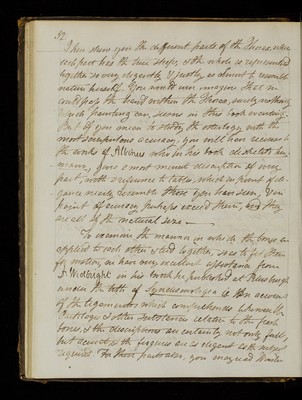 32
I here shew you the different parts of the Thorax, where
each part has the true shape, & the whole is represented
together so very elegantly & justly, as almost to resemble
nature herself. You would even imagine that you
could pass the hand within the Thorax, surely nothing
which painting can, seems in this book wanting.
But if you mean to study the osteology with the
most scrupulous accuracy, you will have recourse to
the works of Albinus who in his book de
gives a most minute description of every
part, with references to tables, which in point of ele-
gance nearly resemble those you have seen, & in
point of accuracy perhaps exceed them, and they
are all of the natural size —
To examine the manner in which the bones are
applied to each other & tied together, so as to fit them
for motion, we have very excellent assistance from
A Weitbrecht in his work he published at Petersburgh
under the title of Syndesmologia or An account
of the ligaments which comprehends likewise the
Cartilages & other substances relative to the fresh
bones, & the descriptions are certainly not only full,
but accurate & the figures are as elegant as the subject
requires. For those particulars, you may read Winslow